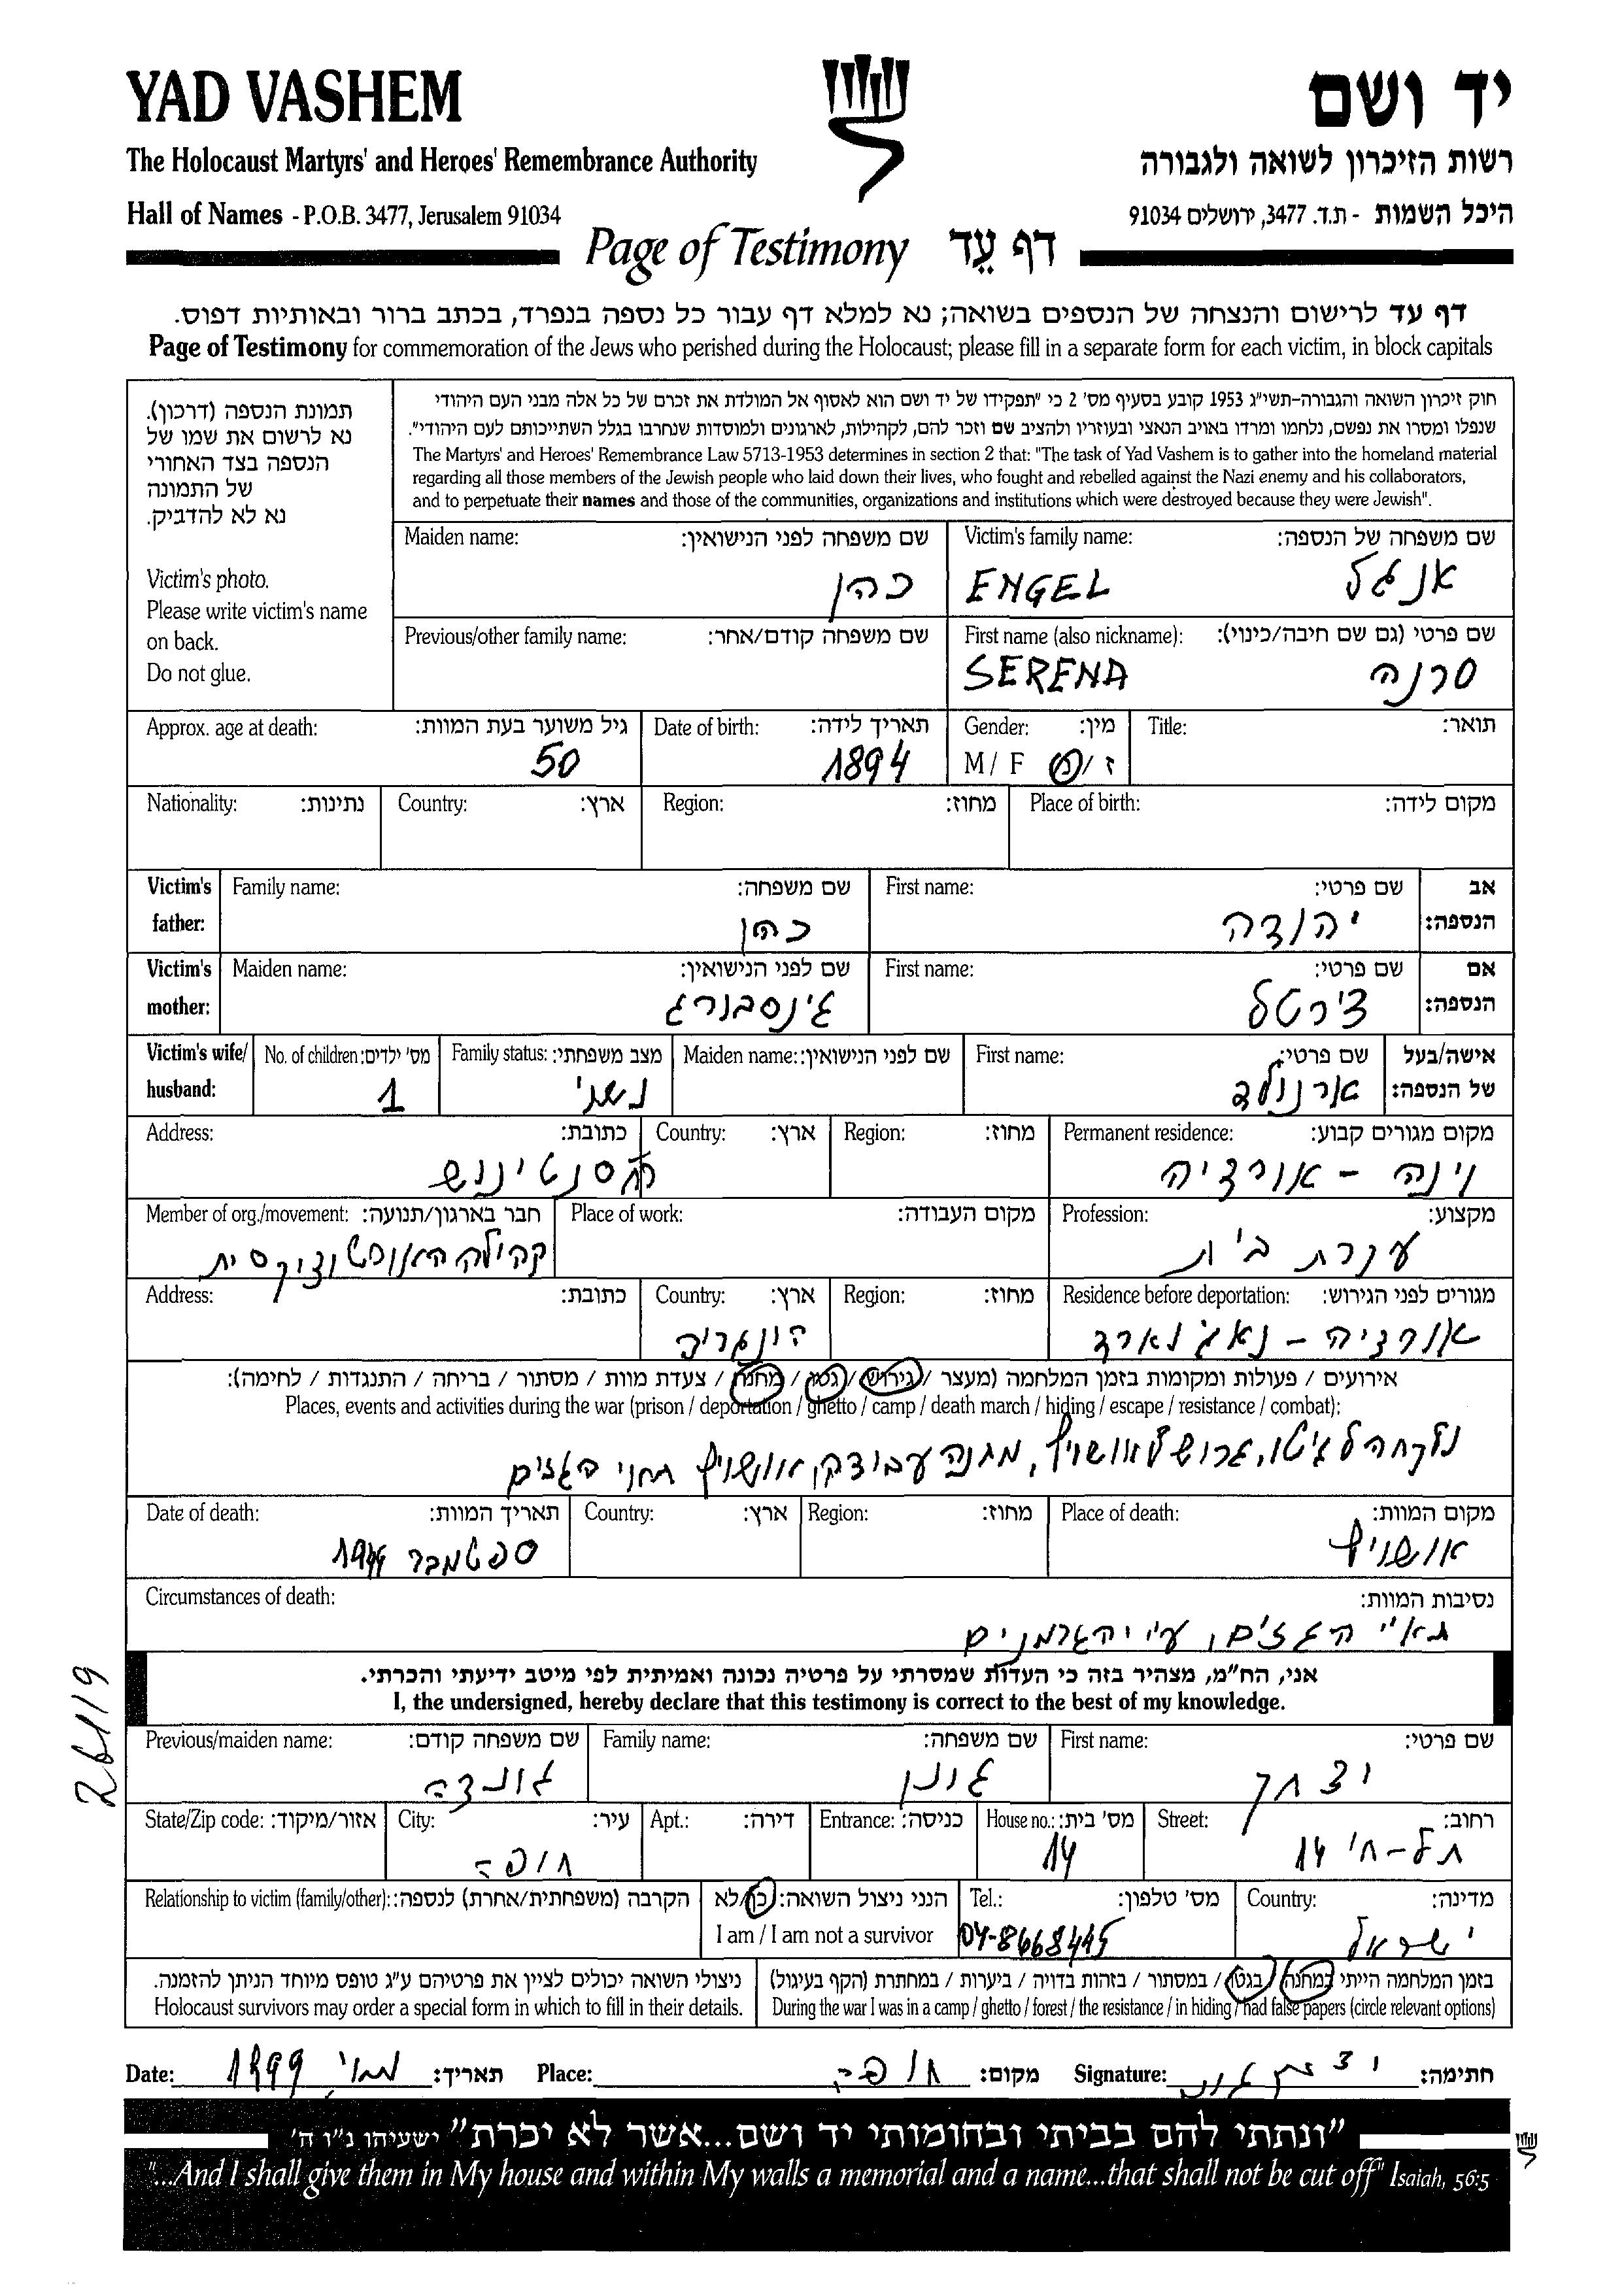 YAD VASHEM
יד ושם
The Holocaust Martyrs' and Heroes' Remembrance Authority
רשות הזיכרון לשואה ולגבורה
Hall of Names - P.O.B. 3477, Jerusalem 91034
היכל השמות - ת.ד. 3477, ירושלים 91034
Page of Testimony דף עֵד
דף עד לרישום והנצחה של הנספים בשואה; נא למלא דף עבור כל נספה בנפרד, בכתב ברור ובאותיות דפוס.
Page of Testimony for commemoration of the Jews who perished during the Holocaust; please fill in a separate form for each victim, in block capitals
תמונת הנספה (דרכון).
נא לרשום את שמו של
הנספה בצד האחורי
של התמונה
נא לא להדביק.
Victim's photo.
Please write victim's name
on back.
Do not glue.
חוק זיכרון השואה והגבורה-תשי"ג 1953 קובע בסעיף מס' 2 כי "תפקידו של יד ושם הוא לאסוף אל המולדת את זכרם של כל אלה מבני העם היהודי
שנפלו ומסרו את נפשם, נלחמו ומרדו באויב הנאצי ובעוזריו ולהציב שם וזכר להם, לקהילות, לארגונים ולמוסדות שנחרבו בגלל השתייכותם לעם היהודי".
The Martyrs' and Heroes' Remembrance Law 5713-1953 determines in section 2 that: "The task of Yad Vashem is to gather into the homeland material
regarding all those members of the Jewish people who laid down their lives, who fought and rebelled against the Nazi enemy and his collaborators,
and to perpetuate their names and those of the communities, organizations and institutions which were destroyed because they were Jewish".
Victim's family name: שם משפחה של הנספה:
ENGEL אנגל
Maiden name: שם משפחה לפני הנישואין:
כהן
First name (also nickname): שם פרטי (גם שם חיבה/כינוי):
SERENA סרנה
Previous/other family name: שם משפחה קודם/אחר:
Title: תואר:
Gender: מין:
M / F ז/נ
Date of birth: תאריך לידה:
1894
Approx. age at death: גיל משוער בעת המוות:
50
Place of birth: מקום לידה:
Region: מחוז:
Country: ארץ:
Nationality: נתינות:
Victim's father: אב הנספה:
First name: שם פרטי:
יהודה
Family name: שם משפחה:
כהן
Victim's mother: אם הנספה:
First name: שם פרטי:
צירטל
Maiden name: שם לפני הנישואין:
גינסבורג
Victim's wife/ husband: אישה/בעל של הנספה:
First name: שם פרטי:
ארנולד
Maiden name: שם לפני הנישואין:
Family status: מצב משפחתי:
נשוי
No. of children: מס' ילדים:
1
Permanent residence: מקום מגורים קבוע:
אורציה
Region: מחוז:
Country: ארץ:
Address: כתובת:
Profession: מקצוע:
עקרת בית
Place of work: מקום העבודה:
Member of org./movement: חבר בארגון/תנועה:
קהילה
Residence before deportation: מגורים לפני הגירוש:
אורציה - נאג'וארד
Region: מחוז:
Country: ארץ:
הונגריה
Address: כתובת:
אירועים / פעולות ומקומות בזמן המלחמה (מעצר / גירוש / גטו / מחנה / צעדת מוות / מסתור / בריחה / התנגדות / לחימה):
Places, events and activities during the war (prison / deportation / ghetto / camp / death march / hiding / escape / resistance / combat):
נלקחה לגיטו, גרוש לאושויץ, מחנה עבודה, אושויץ תאי הגזים
Place of death: מקום המוות:
אושויץ
Region: מחוז:
Country: ארץ:
Date of death: תאריך המוות:
ספטמבר 1944
Circumstances of death: נסיבות המוות:
הגזים, ע"י הגרמנים
אני, הח"מ, מצהיר בזה כי העדות שמסרתי על פרטיה נכונה ואמיתית לפי מיטב ידיעתי והכרתי.
I, the undersigned, hereby declare that this testimony is correct to the best of my knowledge.
First name: שם פרטי:
יצחק
Family name: שם משפחה:
גונן
Previous/maiden name: שם משפחה קודם:
Street: רחוב:
תל-חי 14
House no.: מס' בית:
14
Entrance: כניסה:
Apt.: דירה:
City: עיר:
חיפה
State/Zip code: אזור/מיקוד:
Country: מדינה:
ישראל
Tel.: מס' טלפון:
04-8668445
הנני ניצול השואה: כן/לא
I am / I am not a survivor
Relationship to victim (family/other): הקרבה (משפחתית/אחרת) לנספה:
בזמן המלחמה הייתי במחנה / בגטו / במסתור / בזהות בדויה / ביערות / במחתרת (הקף בעיגול)
During the war I was in a camp / ghetto / forest / the resistance / in hiding / had false papers (circle relevant options)
ניצולי השואה יכולים לציין את פרטיהם ע"ג טופס מיוחד הניתן להזמנה.
Holocaust survivors may order a special form in which to fill in their details.
Date: מאי 1999 תאריך: Place: חיפה מקום: Signature: יצחק גונן חתימה:
"ונתתי להם בביתי ובחומותי יד ושם...אשר לא יכרת" ישעיהו נ"ו ה'
"...And I shall give them in My house and within My walls a memorial and a name...that shall not be cut off" Isaiah, 56:5